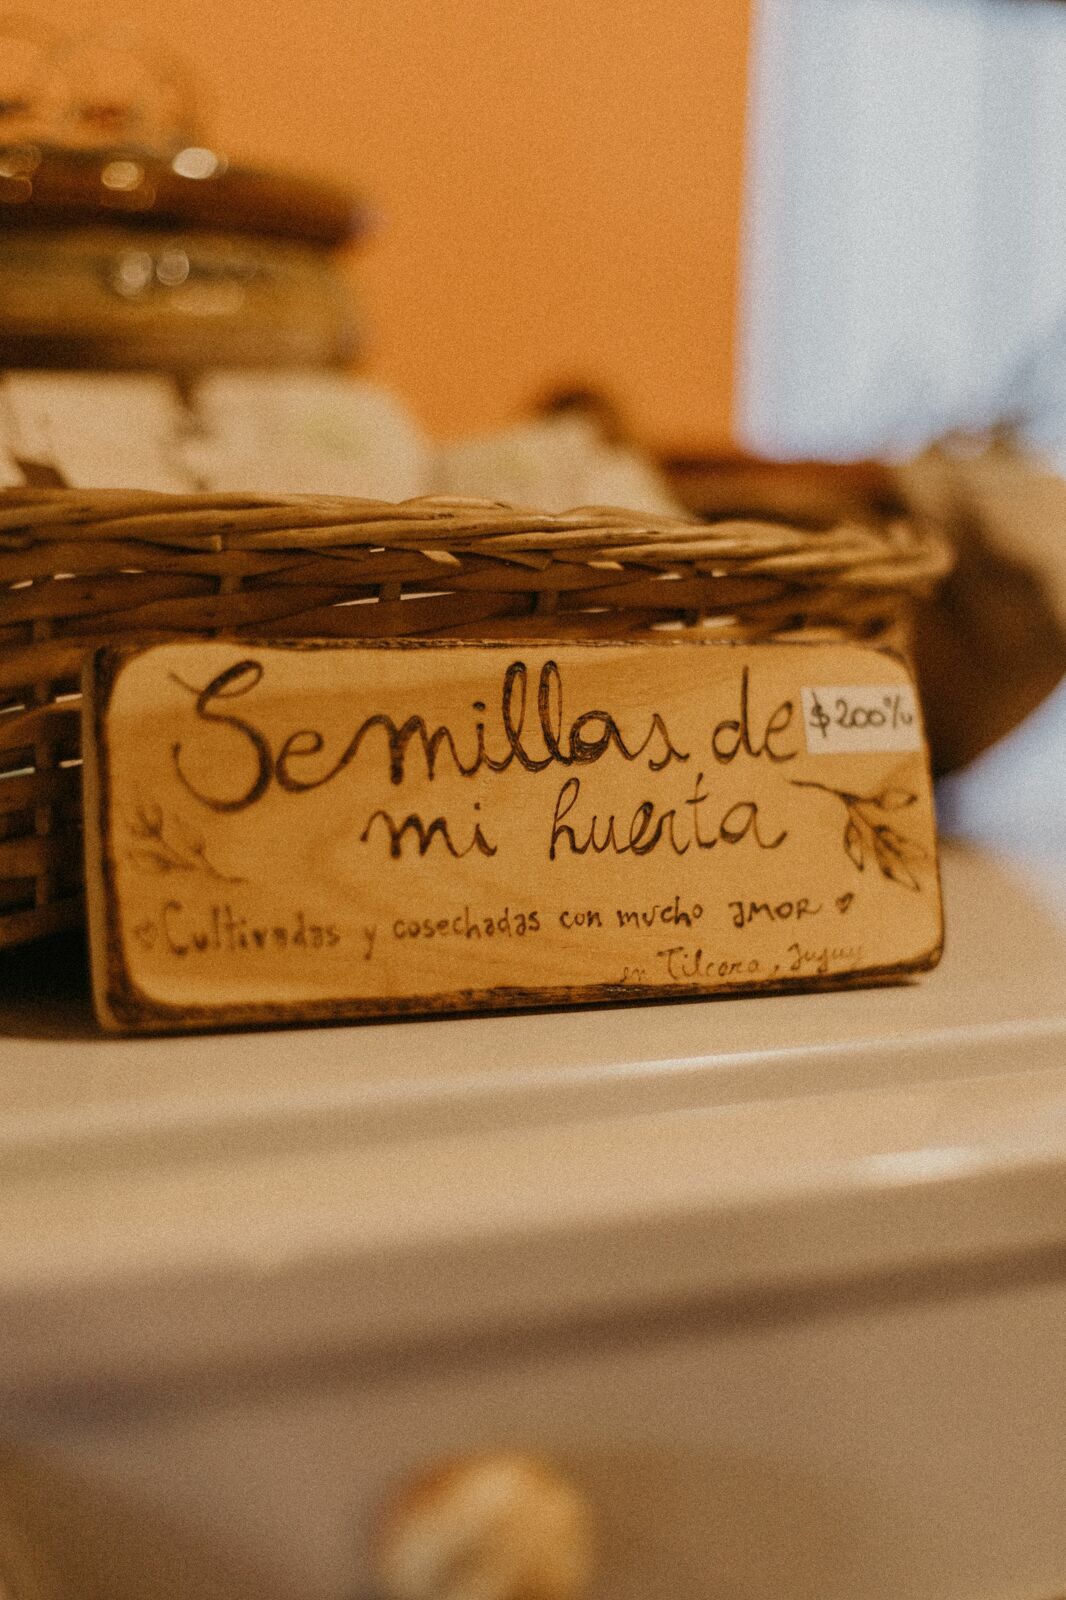 Semillas de
$200 c/u
mi huerta
Cultivadas y cosechadas con mucho amor
en Tilcara, Jujuy